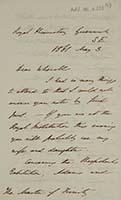 Royal Observatory Greenwich
S.E.
1861 May 3
Dear Whewell
I had so many things
to attend to that I could not
answer your note by first
post. If you are at the
Royal Institution this evening
you will probably see my
wife and daughter.
Concerning the
Exhibition, Adams and
The Master of Trinity